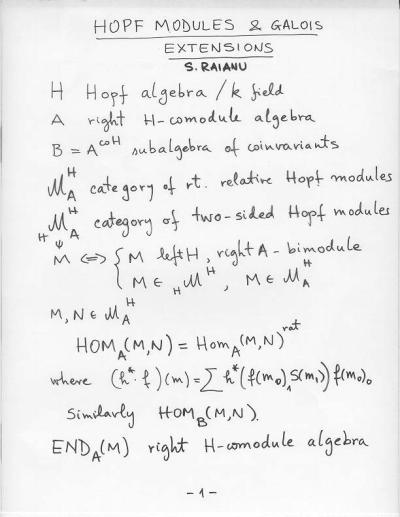 HOPF MODULES & GALOIS
EXTENSIONS
S. RAIANU
H Hopf algebra / k field
A right H-comodule algebra
B = A^{coH} subalgebra of coinvariants
𝓜_A^H category of rt. relative Hopf modules
_H𝓜_A^H category of two-sided Hopf modules
M ⇔ { M left H, right A-bimodule
M ∈ _H𝓜^H, M ∈ 𝓜_A^H
M, N ∈ 𝓜_A^H
HOM_A(M,N) = Hom_A(M,N)^{rat}
where (h*·f)(m) = ∑ h*(f(m_0)_1 S(m_1)) f(m_0)_0
Similarly HOM_B(M,N).
END_A(M) right H-comodule algebra
-1-